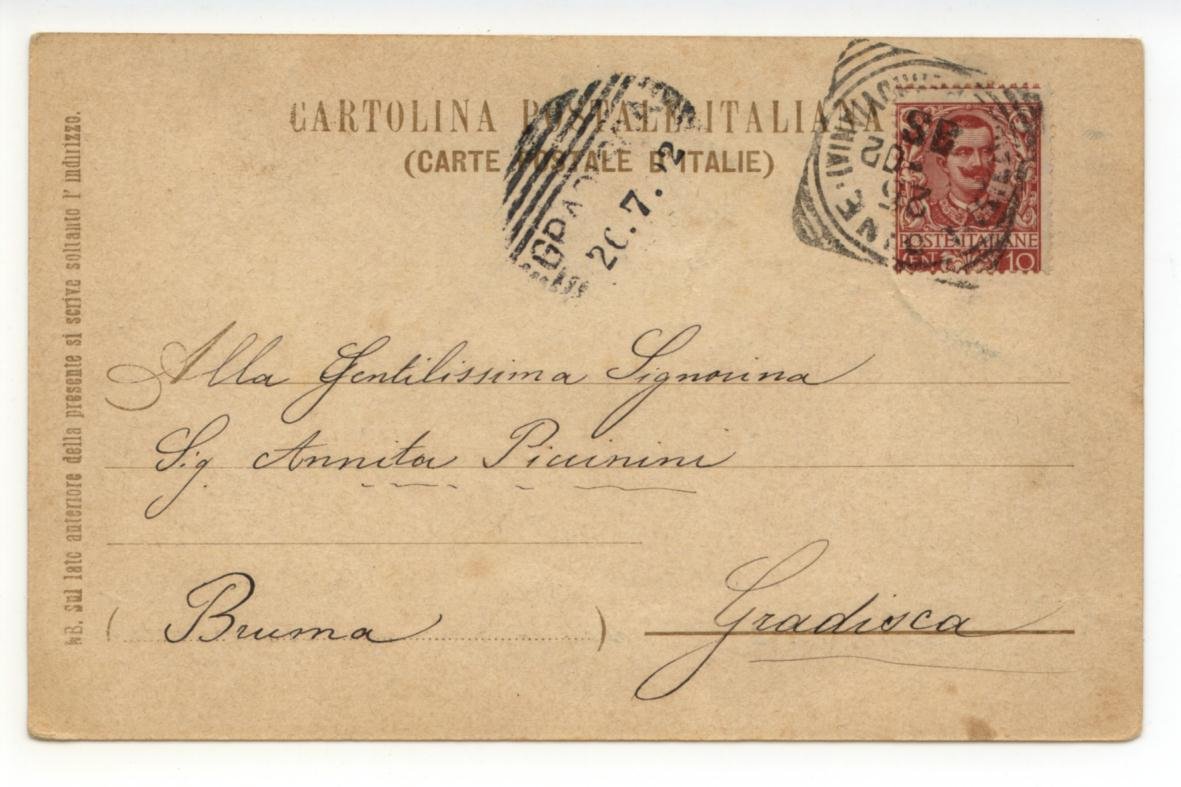 CARTOLINA POSTALE ITALIANA
(CARTE POSTALE D'ITALIE)
20.7.
POSTE ITALIANE
CEN 10
Alla Gentilissima Signorina
Sig Annita Piccinini
(Bruma)
Gradisca
NB. Sul lato anteriore della presente si scrive soltanto l'indirizzo.